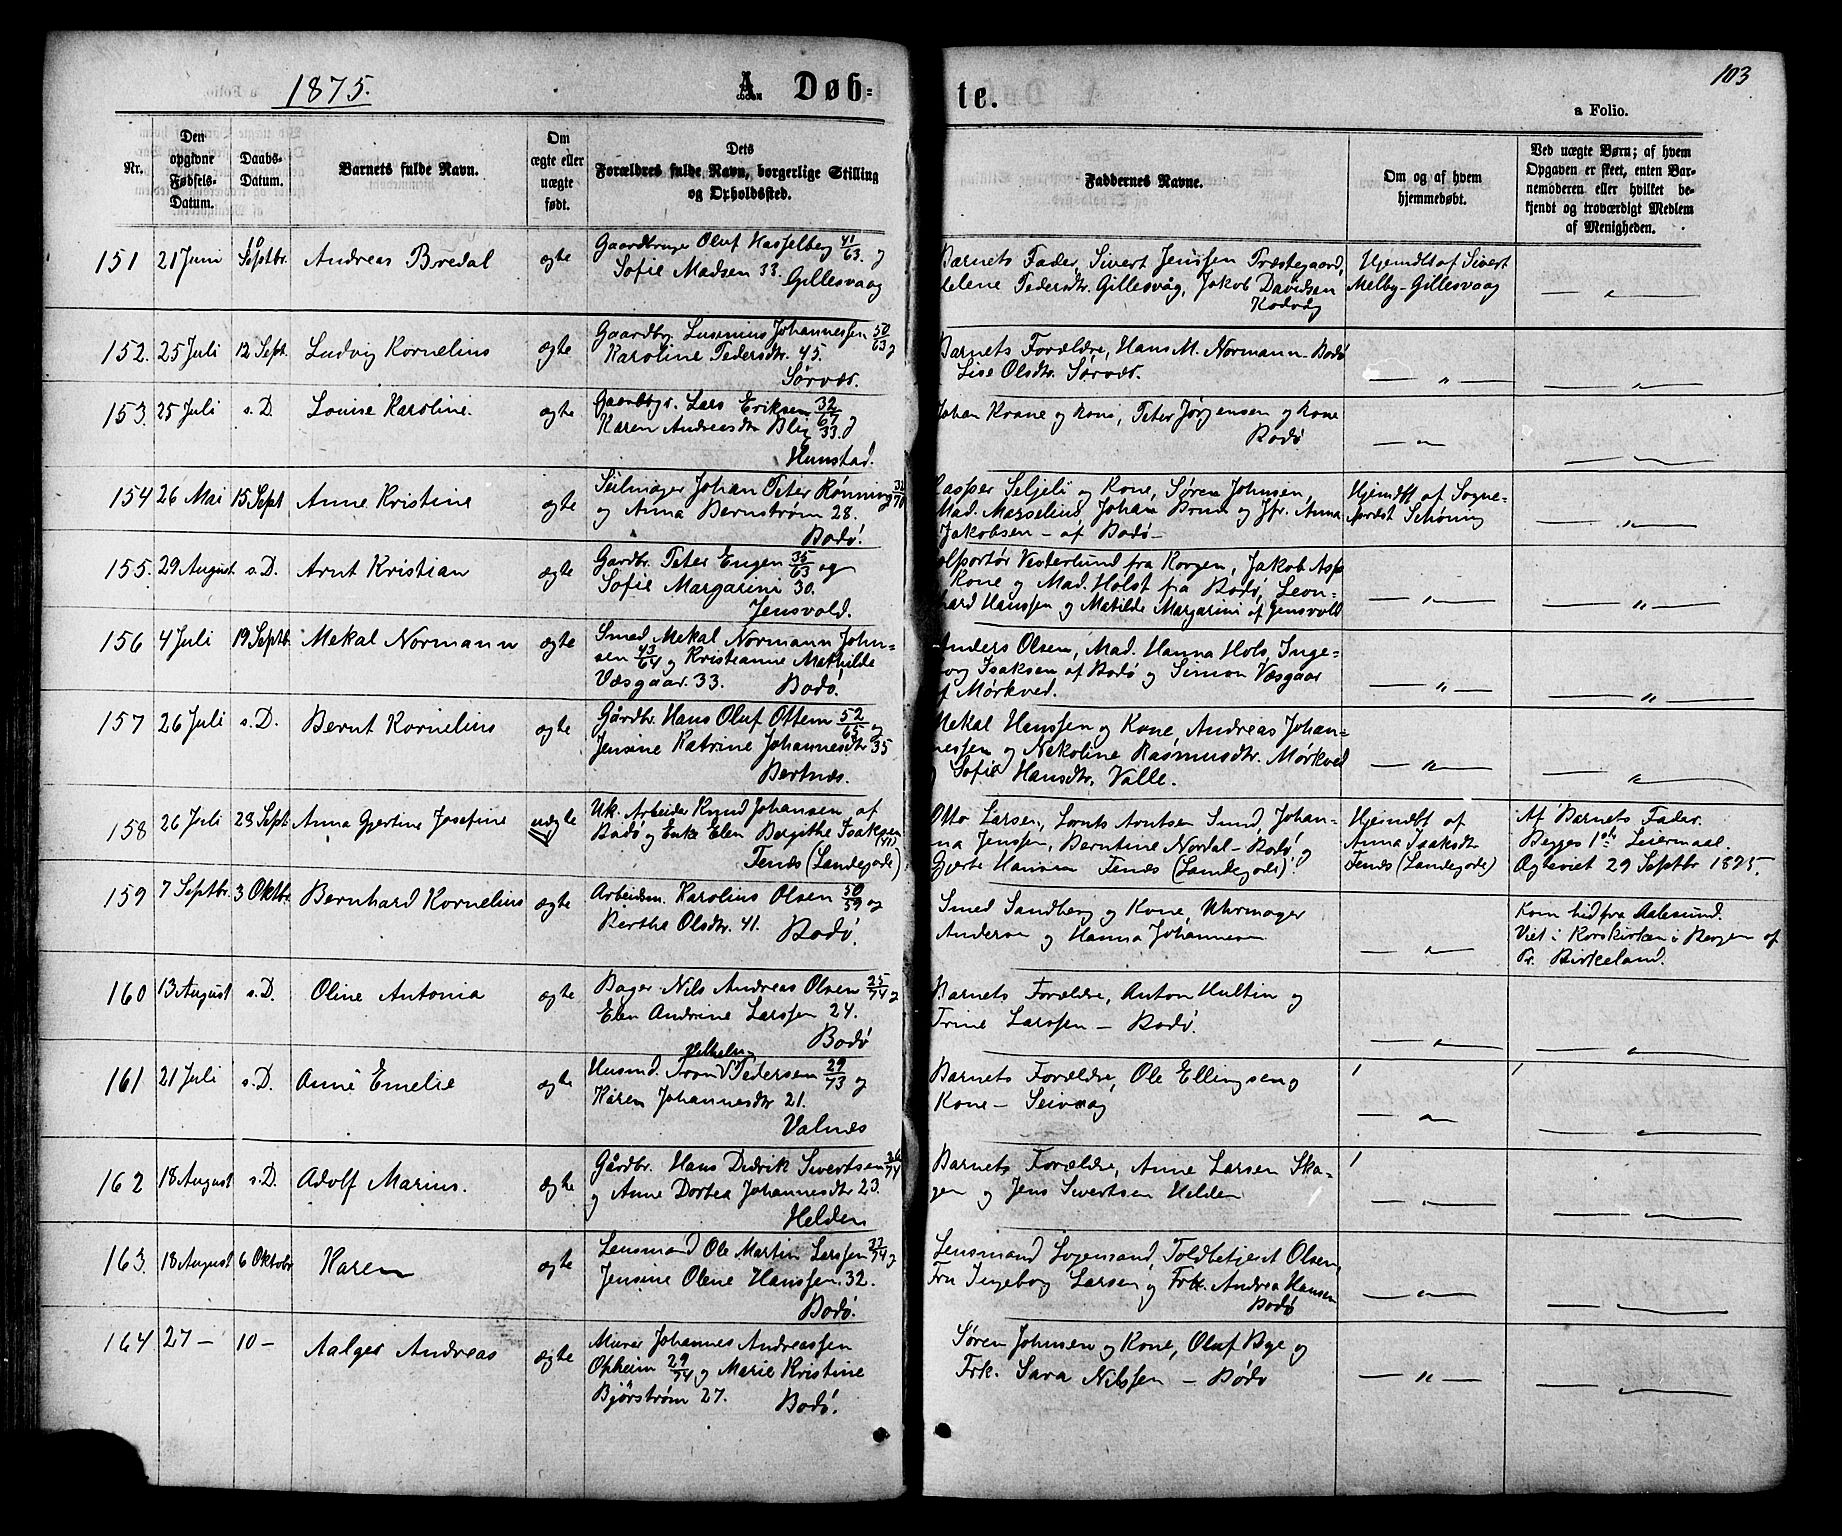 1875.
A. Døb-
te.
103
a Folio.
Nr.
Den opgivne Fødsels-Datum.
Daabs-Datum.
Barnets fulde Navn.
Om ægte eller uægte født.
Dets Forældres fulde Navn, borgerlige Stilling og Opholdssted.
Faddernes Navne.
Om og af hvem hjemmedøbt.
Ved uægte Børn; af hvem Opgaven er skeet, enten Barnemoderen eller hvilket bekjendt og troværdigt Medlem af Menigheden.
151 21 Juni 5 Septbr. Andreas Bredal ægte
Gaardbruger Oluf Hasselberg 41/63. og
Sofie Madsen 33. Gillesvaag
Barnets Fader, Sivert Jenssen Præstegaard,
Pedersdtr. Gillesvåg, Jakob Davidsen
Kodvåg
Hjemdbt af Sivert
Melby - Gillesvaag
152. 25 Juli 12 Sept. Ludvig Kornelius ægte
Gaardbr. Johannessen 50/63 og
Karoline Pedersdtr. 45.
Sørvær.
Barnets Forældre, Hans M. Normann - Bodø
Lise Olsdtr. Sørvær.
153. 25 Juli s.D. Louise Karoline. ægte
Gaardbgr. Lars Eriksen 32/67 og
Karen Andreasdtr Blix 33.
Hunstad.
Johan Krane og Kone, Peter Jørgensen og Kone
Bodø
154 26 Mai 15 Sept Anne Kristine ægte
Seilmager Johan Peter Rønning
og Anna Bernstrøm 28.
Bodø.
Kasper Seljeli og Kone, Søren Johnsen,
Mad. Marselius, Johan Bruun og Jfr. Anna
Jakobsen - af Bodø -
Hjemdbt af Sogne-
præst Schøning
155. 29 August s.D. Arnt Kristian ægte
Gardbr. Peter Engen 35/63 og
Sofie Margarini 30.
Jensvold.
Kolportør Vesterlund fra Korgen, Jakob Asp
Kone og Mad. Holst fra Bodø, Leon-
hard Hanssen og Matilde Margarini af Jensvold
156 4 Juli 19 Septbr. Mekal Normann ægte
Smed Mekal Normann John-
sen 43/64 og Kristianne Mathilde
Væsgaar. 33. Bodø.
Anders Olsen, Mad. Hanna Hols, Inge-
borg Isaksen af Bodø og Simon Væsgaar
af Mørkved.
157 26 Juli s.D. Bernt Kornelius ægte
Gårdbr. Hans Oluf Ottem 52/65 og
Jensine Katrine Johannesdtr 35
Bertnæs.
Mekal Hanssen og Kone, Andreas Johan-
nessen og Nekoline Rasmusdtr. Mørkved
Sofie Hansdtr. Valle.
158 26 Juli 29 Sept Anna Gjertine Josefine uægte
Uk. Arbeider Knud Johansen af
Bodø og Enke Elen Bergithe Isaksen (41)
Fenæs (Landegode)
Otto Larsen, Lornts Arntsen Smed, Johan-
na Jenssen, Berntine Nordal - Bodø og
Gjerte Hansen Fenæs (Landegode).
Hjemdbt af
Anna Isaksdtr
Fenæs (Landegode)
Af Barnets Fader.
Begges 1ste Leiermaal.
Ægteviet 29 Septbr 1875.
159 7 Septbr. 3 Oktbr. Bernhard Kornelius ægte
Arbeidsm. Karolius Olsen 50/59 og
Bertha Olsdtr. 41. Bodø.
Smed Sandberg og Kone, Uhrmager
Andersen og Hanna Johannesen
Kom hid fra Aalesund.
Viet i Korskirken i Bergen af
Pr. Birkeland.
160 13 August s.D. Oline Antonia ægte
Bager Nils Andreas Olsen 25/74 og
Elen Andrine Larssen 24.
Bodø
Barnets Forældre, Anton Hultin og
Trine Larssen - Bodø.
161 21 Juli s.D. Anne Emelie ægte
Husmd. Vilhelm Pedersen 29/73 og
Karen Johannesdtr 21.
Valnæs
Barnets Forældre, Ole Ellingsen og
Kone - Seivaag
162 18 August s.D. Adolf Marius. ægte
Gårdbr. Hans Didrik Sivertsen 26/74
og Anne Dortea Johannesdtr 23.
Helden
Barnets Forældre, Anne Larsen Ska-
gen og Jens Sivertsen Helden
163. 18 August 6 Oktobr Karen ægte
Lensmand Ole Martin Larssen 33/74 og
Jensine Oline Hanssen. 32.
Bodø.
Lensmand Logensand, Toldbetjent Olsen,
Fru Ingeborg Larsen og Frk. Andrea Hansen
Bodø
164 27 - 10 - Aalger Andreas ægte
Murer Johannes Andreassen
Opheim 29/74 og Marie Kristine
Bjørstrøm 27. Bodø.
Søren Johnsen og Kone, Oluf Bye og
Frk. Sara Nilssen - Bodø